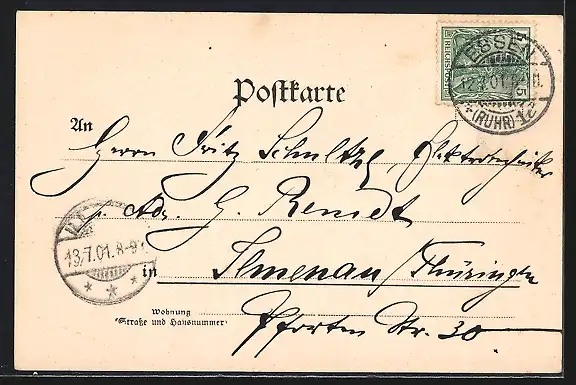 REICHSPOST
ESSEN
12.7.01.
(RUHR)
Postkarte
An
Herrn Fritz Schultze, Elektrotechniker
p. Adr. G. Remdt
13.7.01. 8-9
in Ilmenau/Thüringen
Wohnung
(Straße und Hausnummer)
Pforten Str. 30